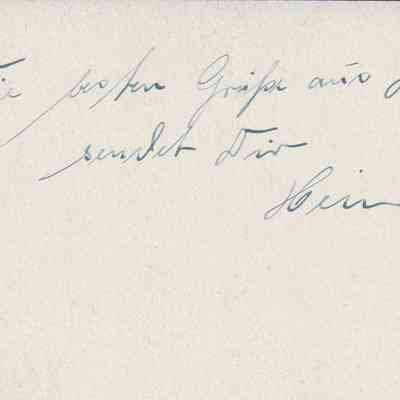 Die besten Grüße aus
sendet Dir
Hein